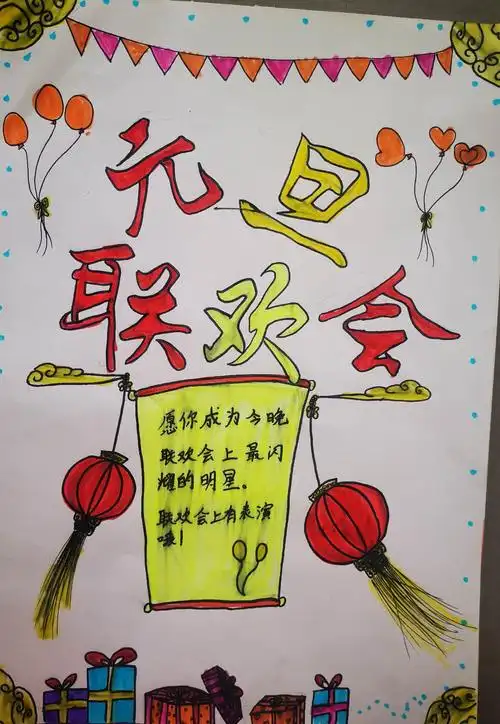 元旦
联欢会
愿你成为今晚
联欢会上最闪
耀的明星。
联欢会上有表演
噢!